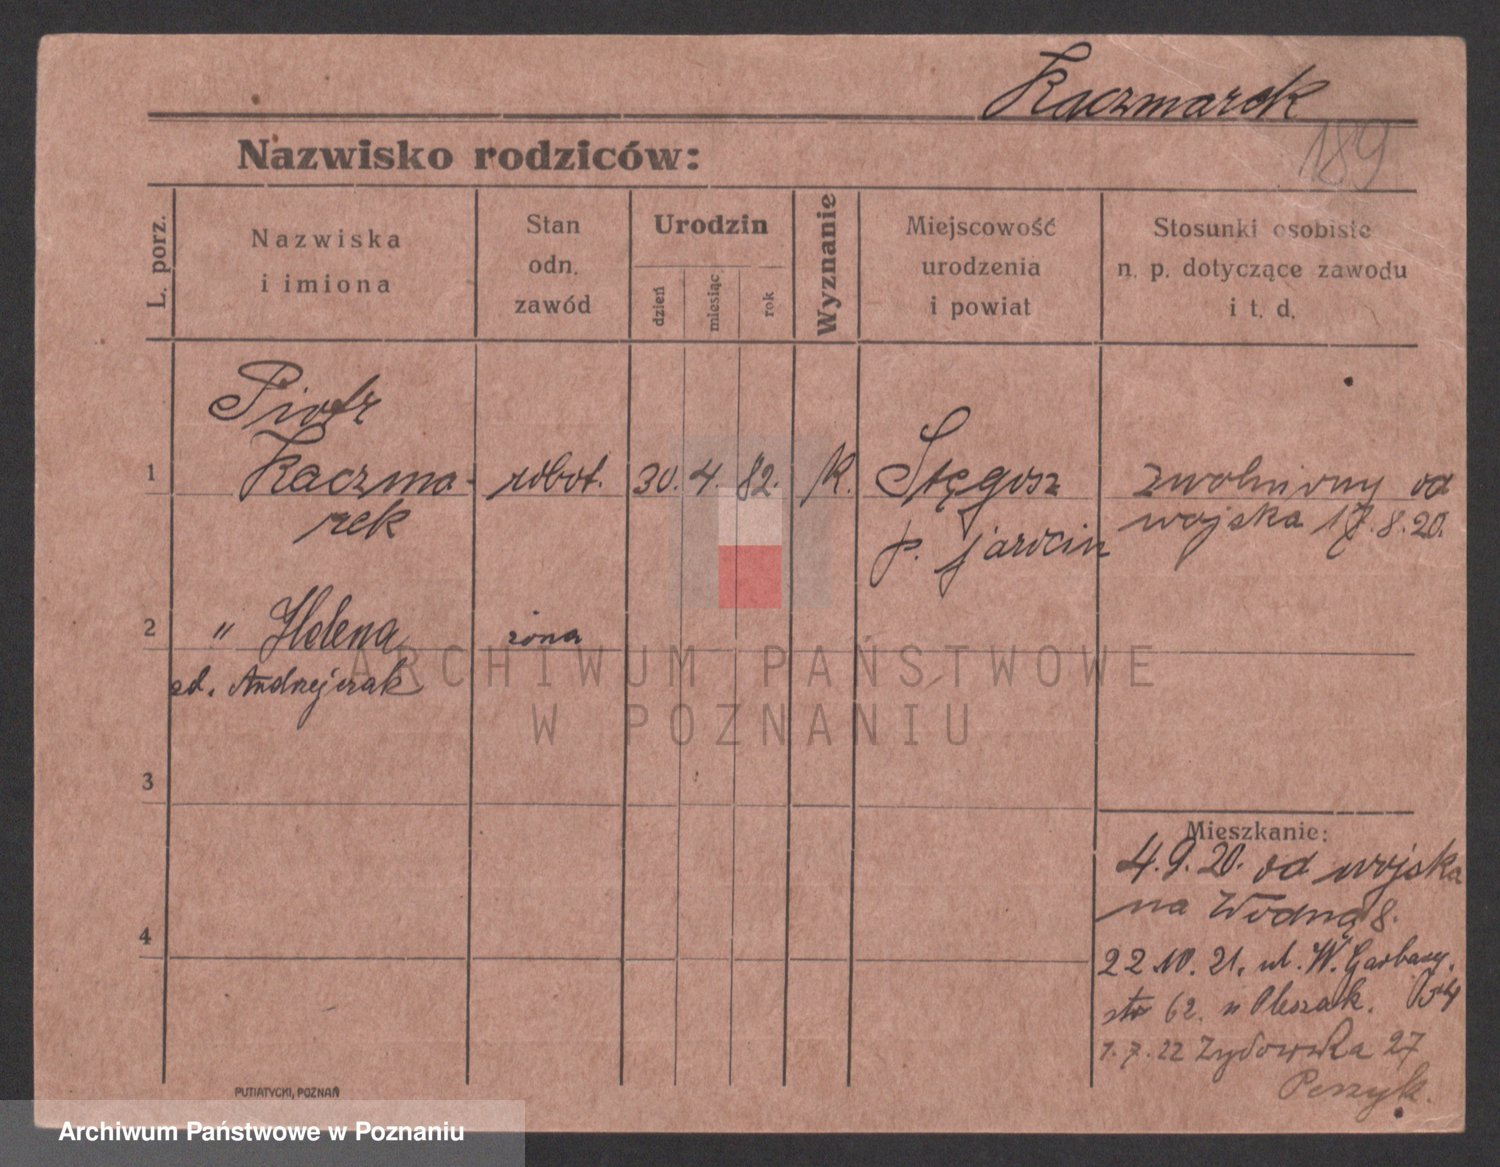 Kaczmarek
189
Nazwisko rodziców:
L. porz.
Nazwiska
i imiona
Stan
odn.
zawód
Urodzin
dzień
miesiąc
rok
Wyznanie
Miejscowość
urodzenia
i powiat
Stosunki osobiste
n. p. dotyczące zawodu
i t. d.
Piotr
1 Kaczma- robot. 30. 4. 82. K. Stęgosz zwolniony od
rek p. Jarocin wojska 17.8.20.
2 " Helena żona
Andrzejczak
3
Mieszkanie:
4.9.20. od wojska
na Wodną 8.
4
22.10.21. ul. W. Garbary
62. u
1.7.22 Żydowska 27
PUTIATYCKI, POZNAŃ
ARCHIWUM PAŃSTWOWE
W POZNANIU
Archiwum Państwowe w Poznaniu